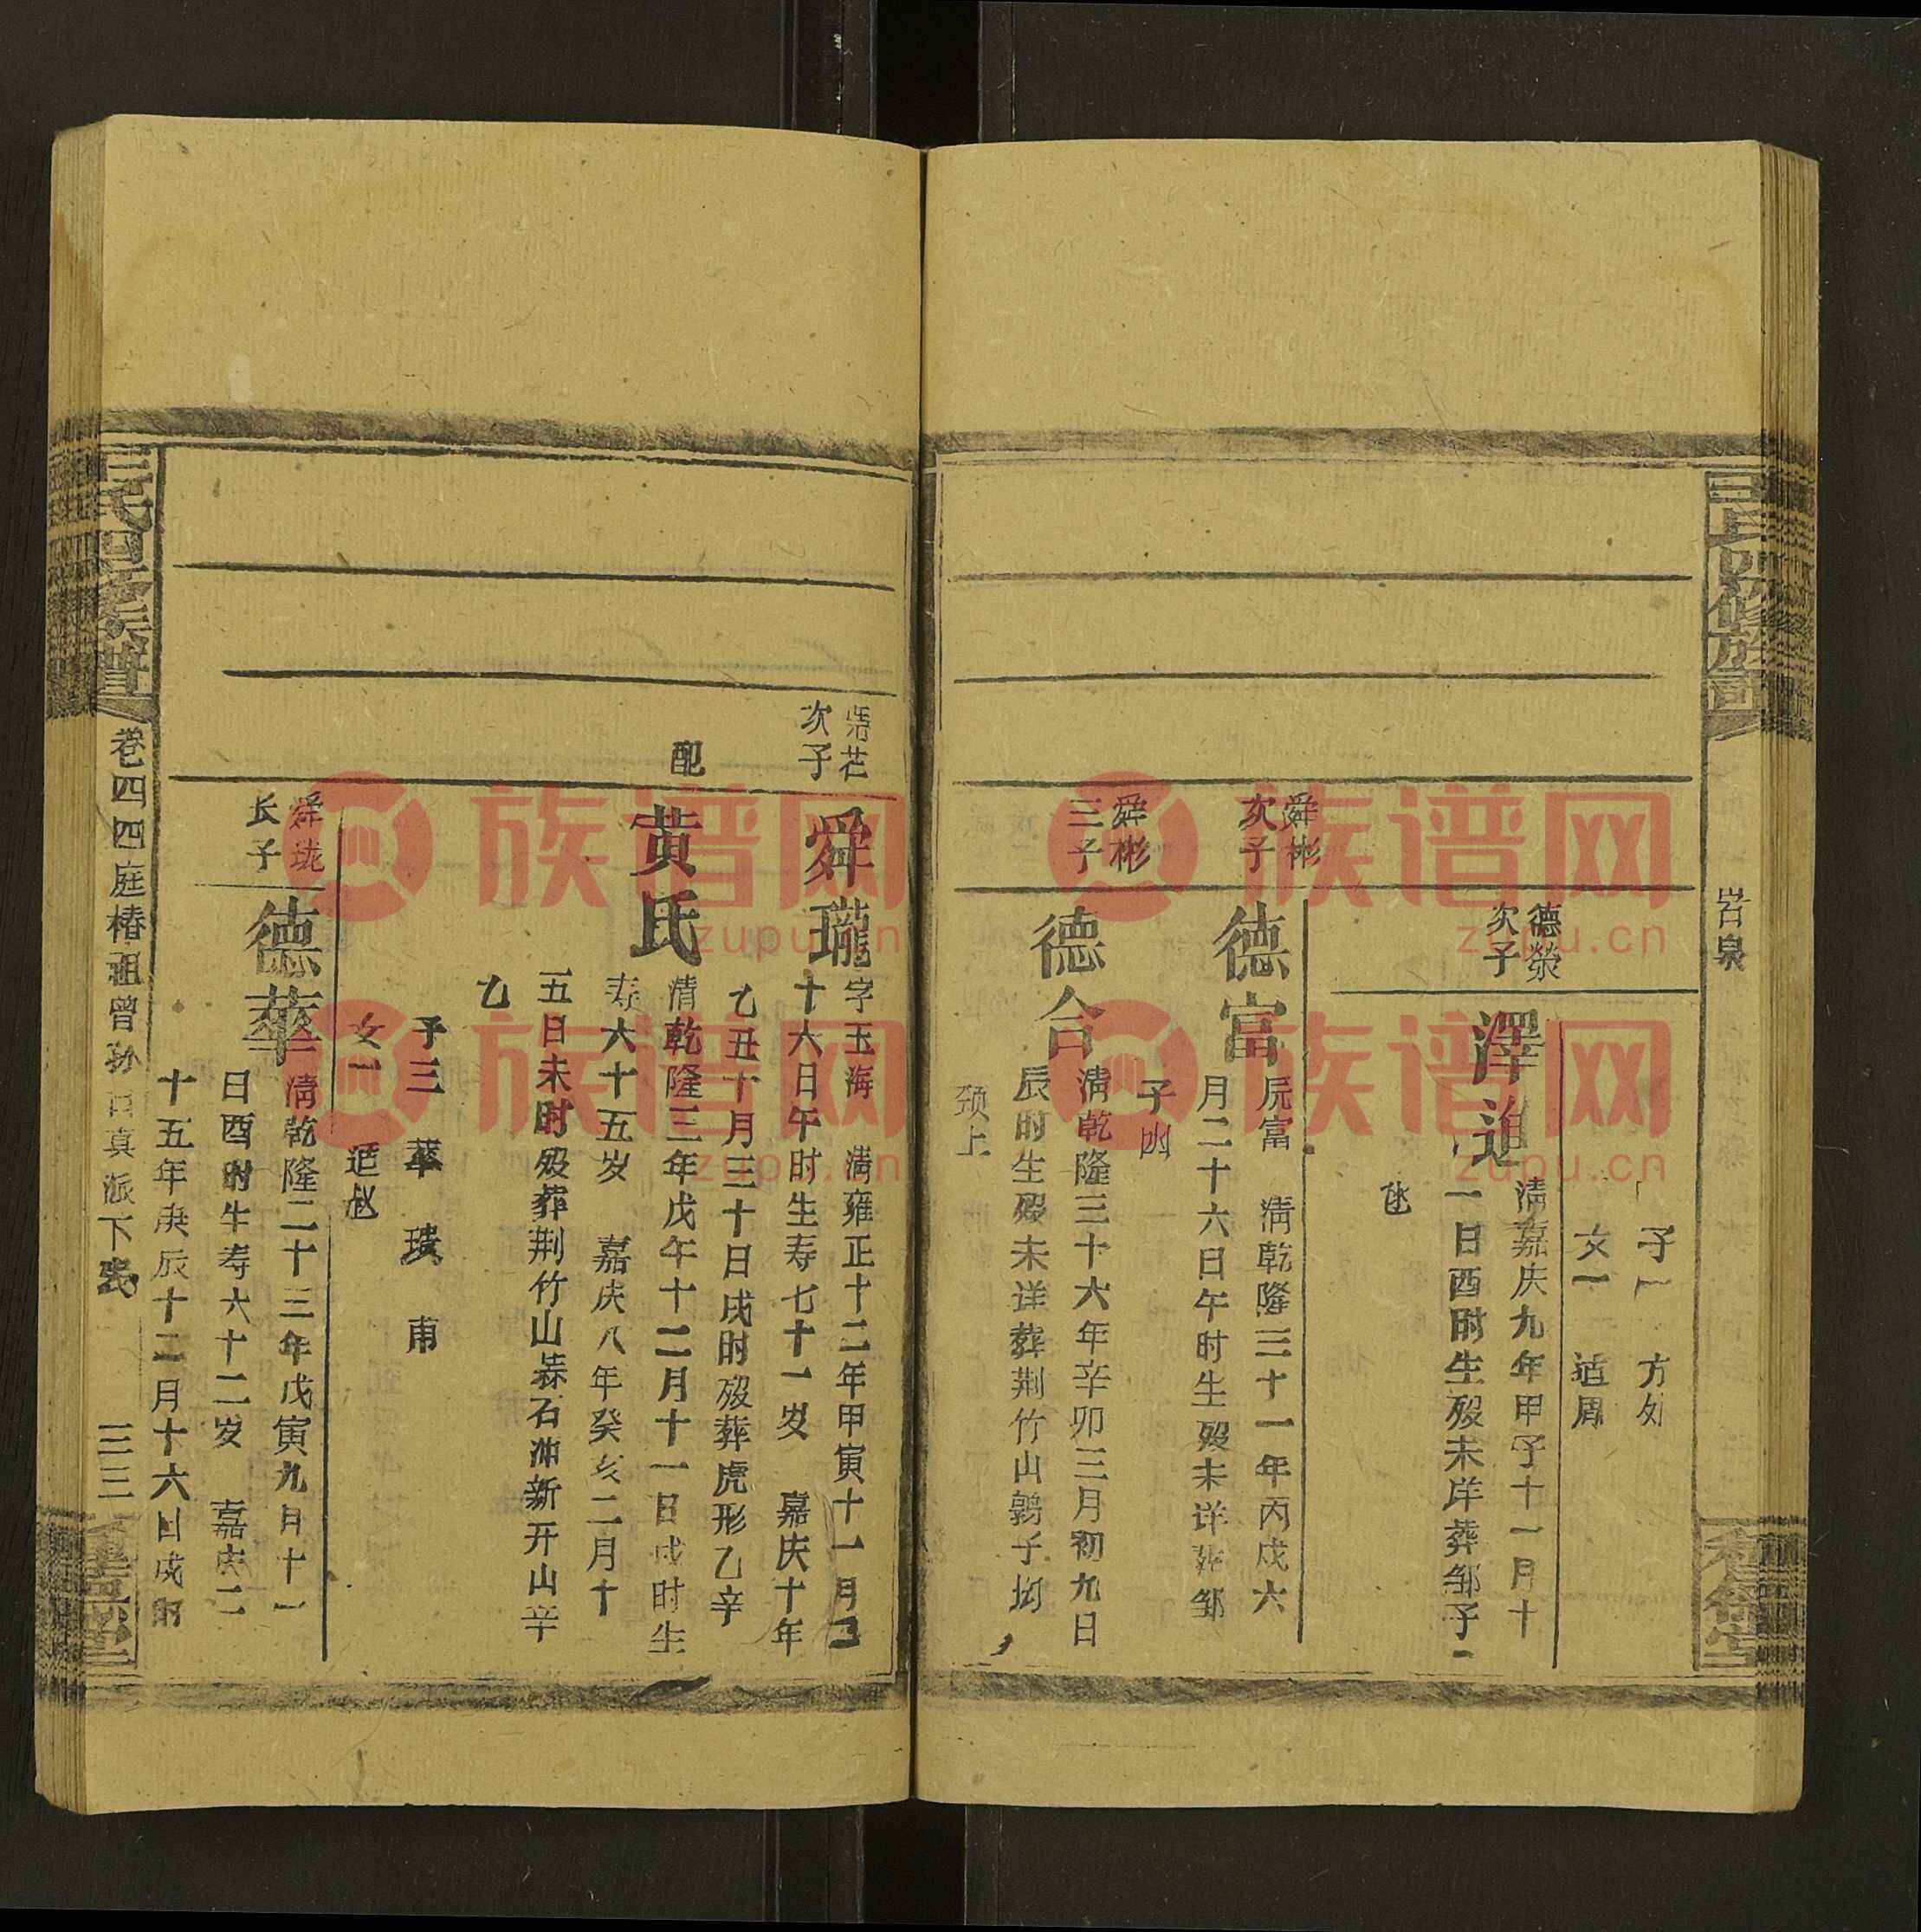 岩泉
子一 方处
女一 适周
德荣
次子
澤進
清嘉庆九年甲子十一月十
一日酉时生殁未详葬邹子
舜彬
次子
德富
清乾隆三十一年丙戌六
月二十六日午时生殁未详葬邹
子凼
舜彬
三子
德合
清乾隆三十六年辛卯三月初九日
辰时生殁未详葬荆竹山鹅子坳
颈上
次子
舜瓏
字玉海 清雍正十二年甲寅十一月
十六日午时生寿七十一岁 嘉庆十年
乙丑十月三十日戌时殁葬虎形乙辛
配
黄氏
清乾隆三年戊午十二月十一日戌时生
寿六十五岁 嘉庆八年癸亥二月十
五日未时殁葬荆竹山 石冲新开山辛
乙
子三 華 璜 甫
女一 适赵
舜珑
长子
德華
清乾隆二十三年戊寅九月十一
日酉时生寿六十二岁 嘉庆二
十五年庚辰十二月十六日戌时
氏四修族譜
卷四 四庭椿祖曾孙 真派下
三三
族谱网
zupu.cn
族谱网
zupu.cn
族谱网
zupu.cn
族谱网
zupu.cn